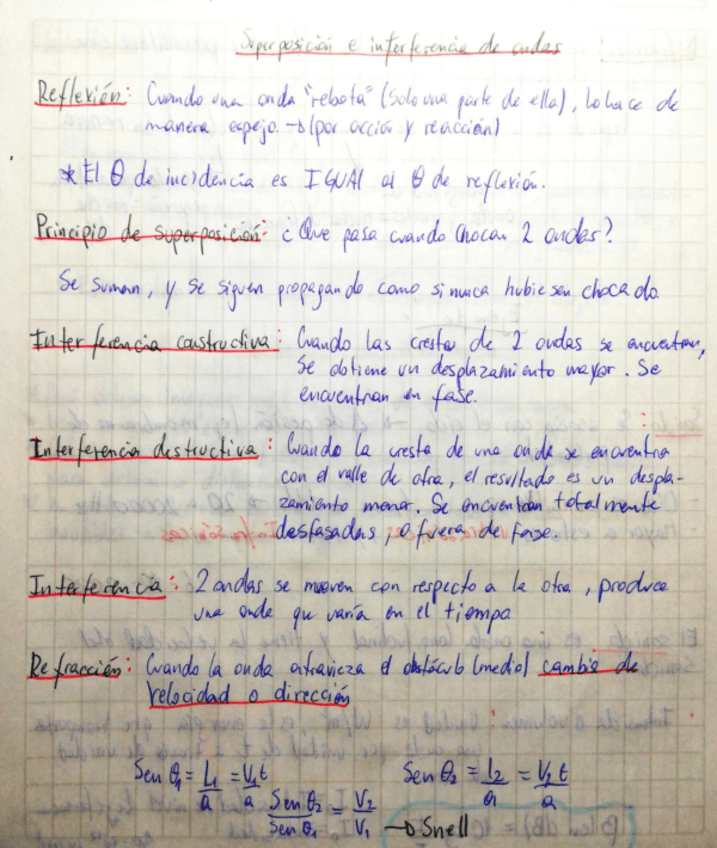 Superposición e interferencia de ondas
Reflexión: Cuando una onda "rebota" (Solo una parte de ella), lo hace de
manera espejo. → (por acción y reacción)
* El θ de incidencia es IGUAL al θ de reflexión.
Principio de superposición: ¿Que pasa cuando chocan 2 ondas?
Se suman, y se siguen propagando como si nunca hubiesen chocado
Interferencia constructiva: Cuando las crestas de 2 ondas se encuentran,
se obtiene un desplazamiento mayor. Se
encuentran en fase.
Interferencia destructiva: Cuando la cresta de una onda se encuentra
con el valle de otra, el resultado es un despla-
zamiento menor. Se encuentran totalmente
desfasadas, o fuera de fase.
Interferencia: 2 ondas se mueven con respecto a la otra, produce
una onda que varía en el tiempo
Refracción: Cuando la onda atravieza el obstáculo (medio) cambia de
velocidad o dirección
Sen θ₁ = L₁/a = V₁t/a Sen θ₂ = L₂/a = V₂t/a
Sen θ₂/Sen θ₁ = V₂/V₁ → Snell